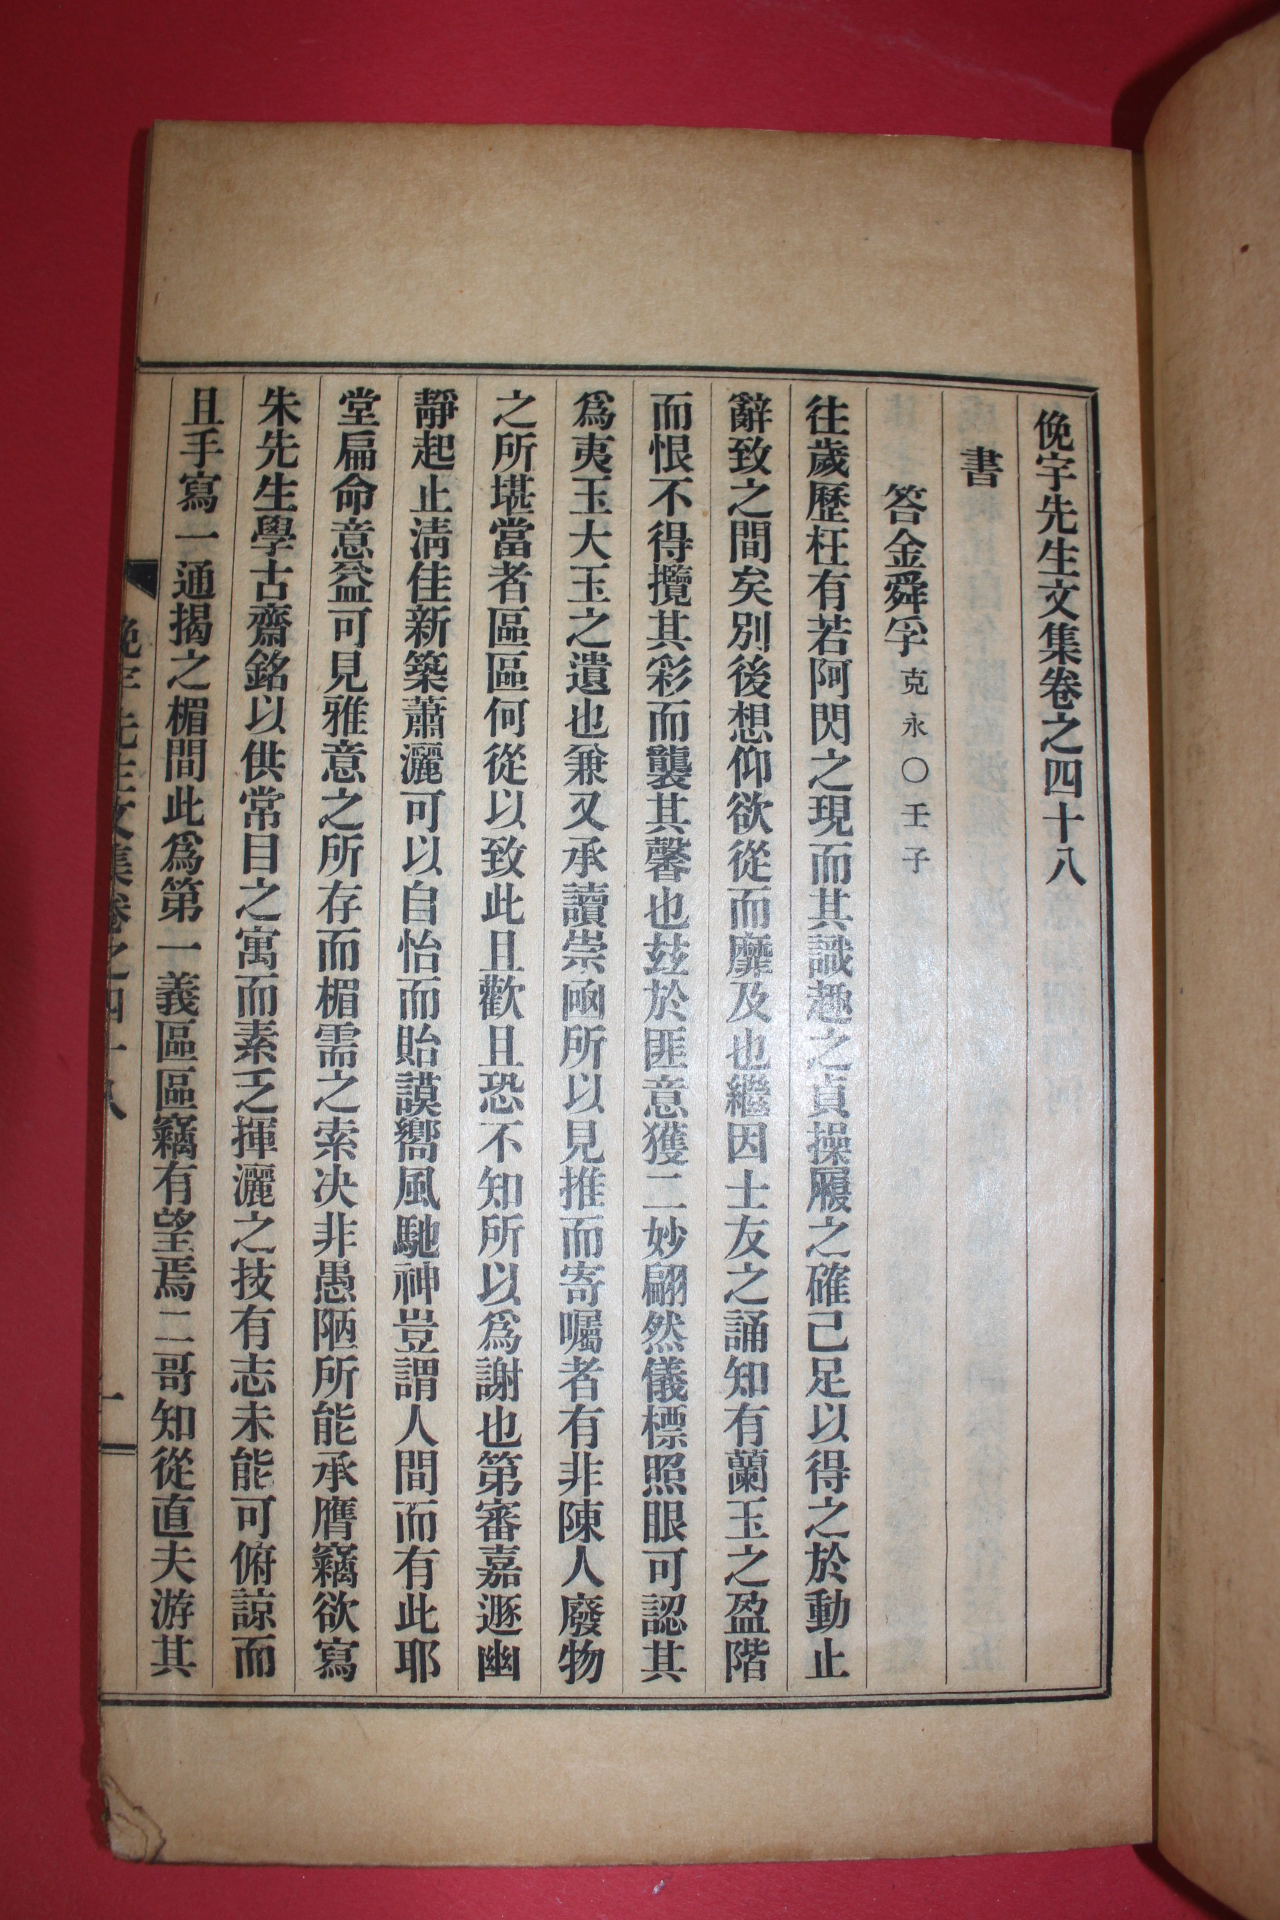 俛宇先生文集卷之四十八
書
答金舜孚克永○壬子
往歲歷枉有若阿閃之現而其識趣之貞操履之確已足以得之於動止
辭致之間矣別後想仰欲從而靡及也繼因士友之誦知有蘭玉之盈階
而恨不得攬其彩而襲其馨也玆於匪意獲二妙翩然儀標照眼可認其
爲夷玉大玉之遺也兼又承讀崇凾所以見推而寄囑者有非陳人廢物
之所堪當者區區何從以致此且歡且恐不知所以爲謝也第審嘉遯幽
靜起止淸佳新築蕭灑可以自怡而貽謨嚮風馳神豈謂人間而有此耶
堂扁命意益可見雅意之所存而楣需之索决非愚陋所能承膺竊欲寫
朱先生學古齋銘以供常目之寓而素乏揮灑之技有志未能可俯諒而
且手寫一通揭之楣間此爲第一義區區竊有望焉二哥知從直夫游其
俛宇先生文集卷之四十八 一